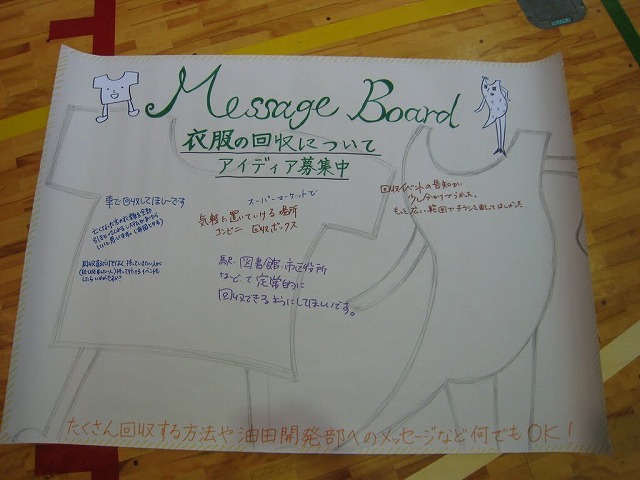 Message Board
衣服の回収について
アイディア募集中
車で回収してほし〜です
スーパーマーケットで
気軽に置いていける場所
コンビニ 回収ボックス
駅、図書館、市区役所
などで定常的に
回収できるようにしてほしいです。
回収イベントの告知が
少し分かりづらかった。
もっと広い範囲でチラシを出してほしかった
たくさん回収する方法や油田開発部へのメッセージなど何でもOK!